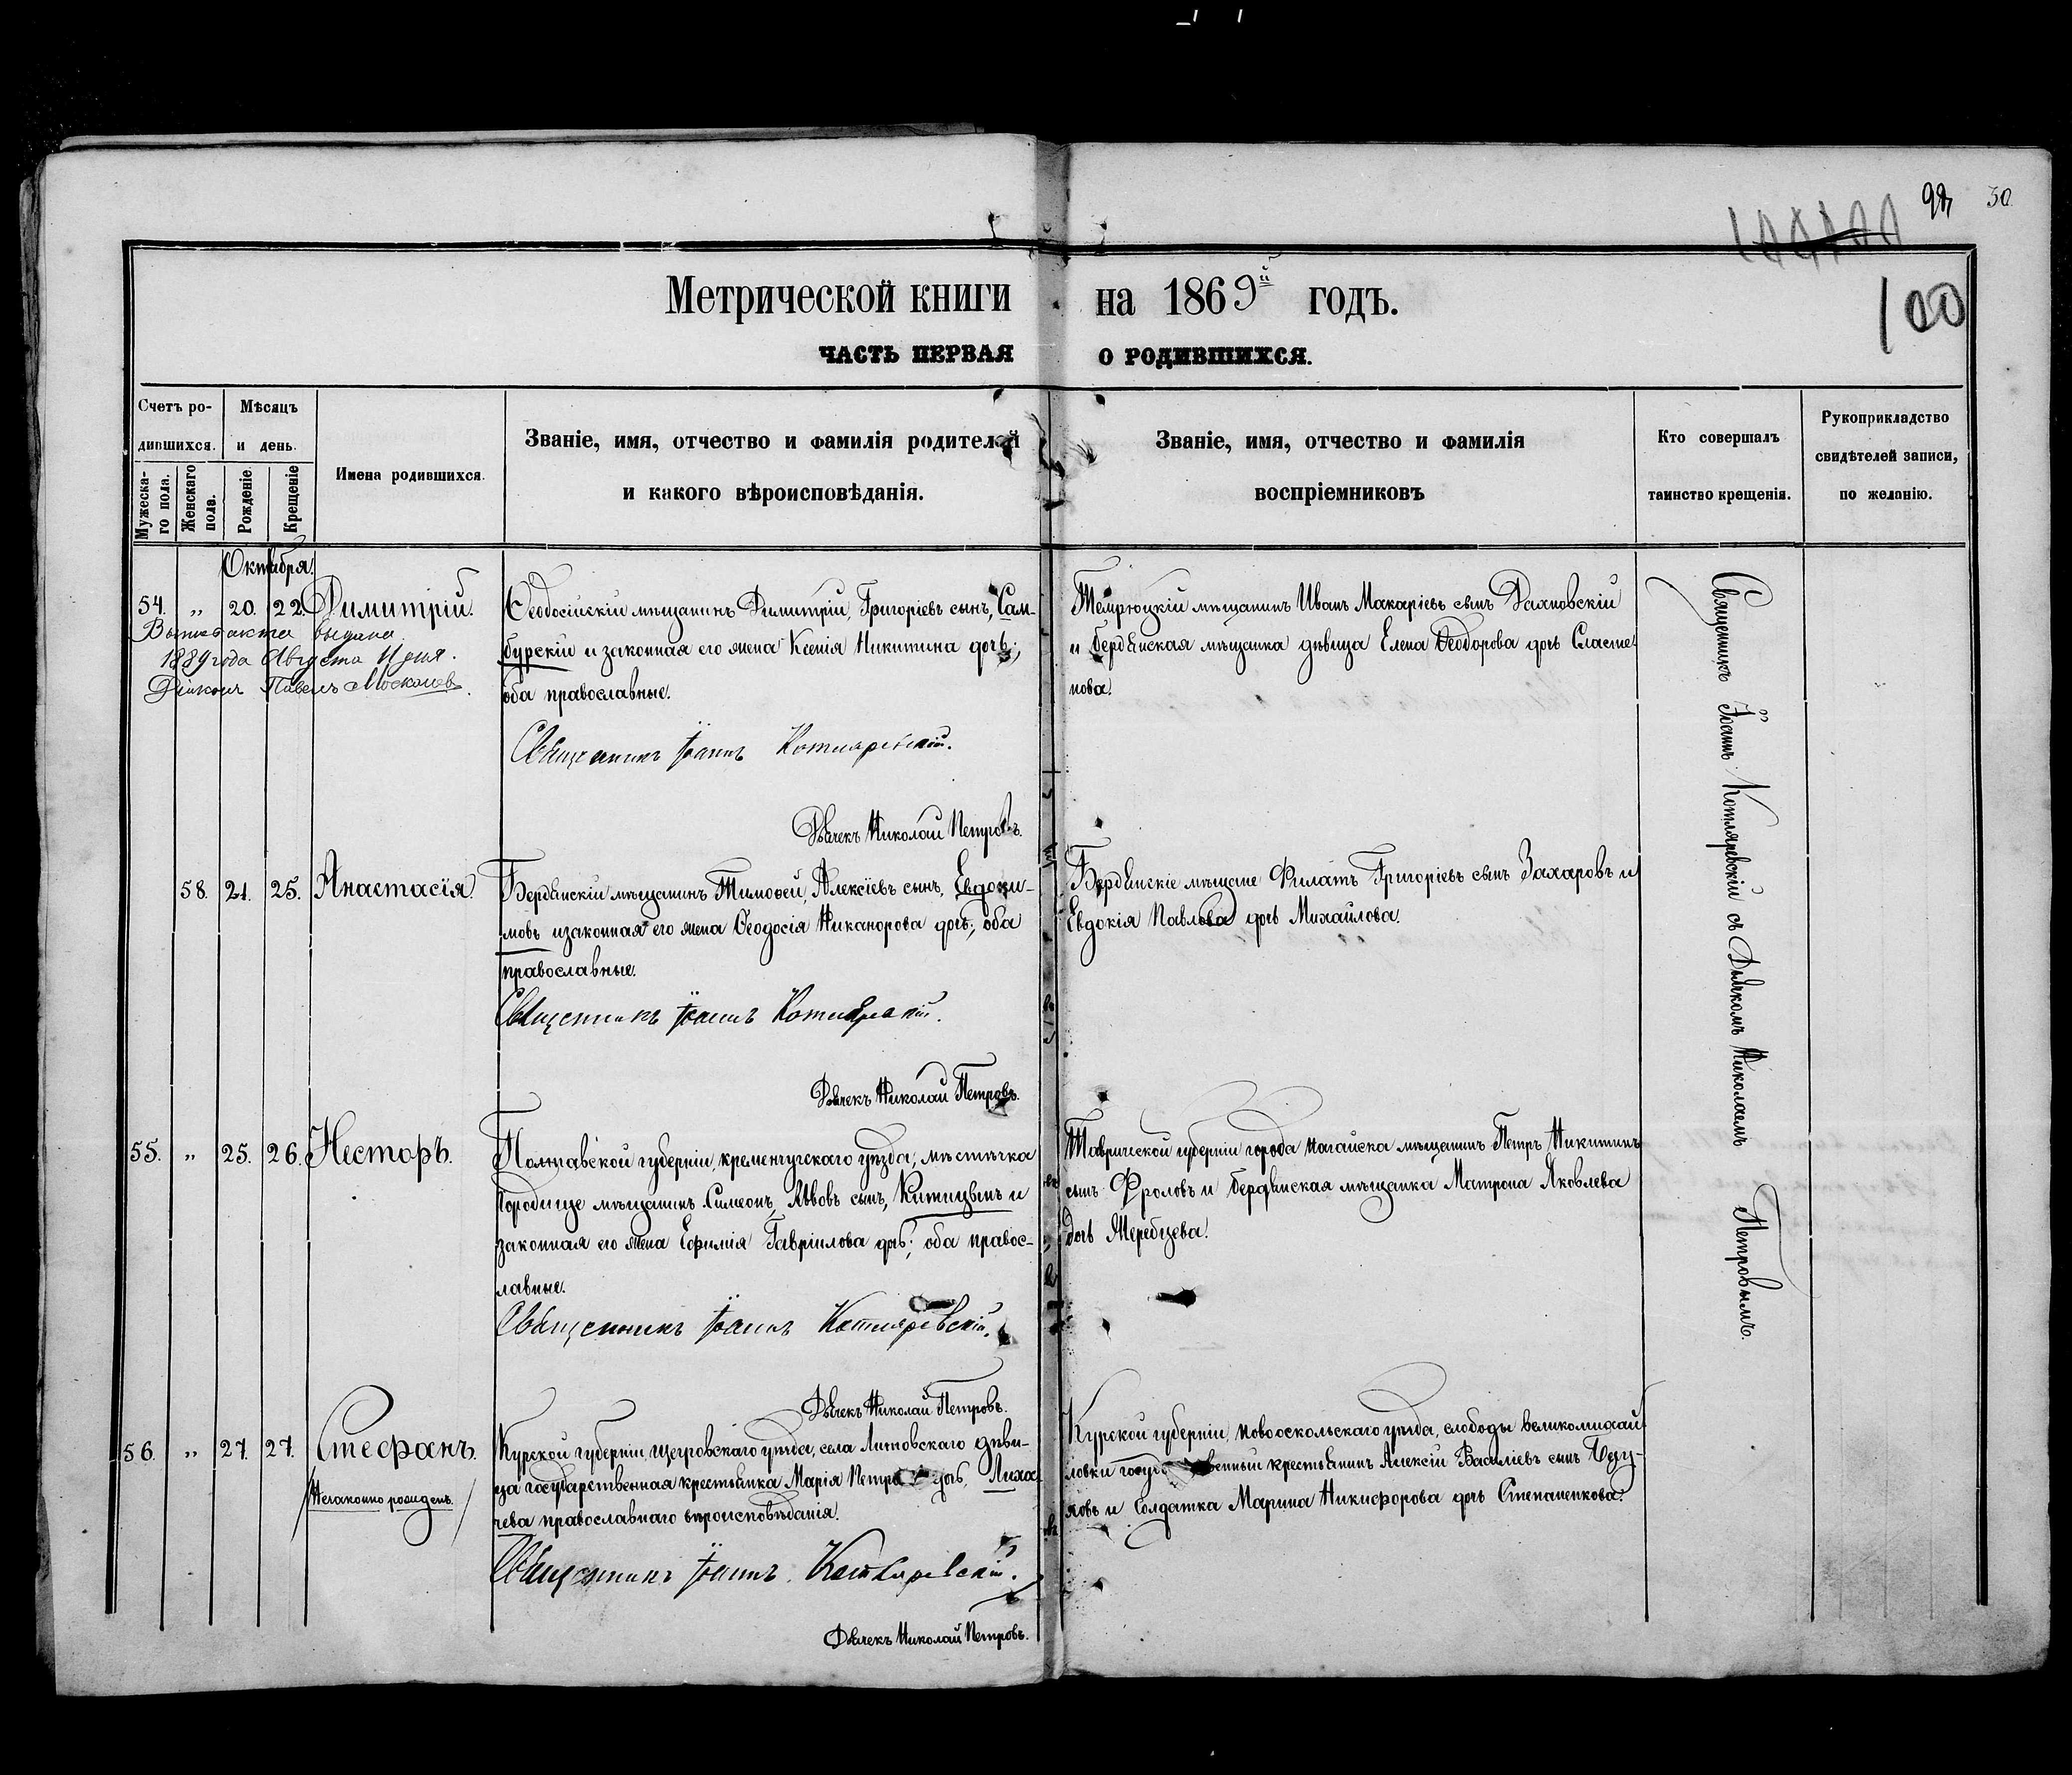 30
100
Метрической книги на 1869й годъ.
ЧАСТЬ ПЕРВАЯ О РОДИВШИХСЯ.
Счетъ ро-
дившихся.
Мужеска-
го пола.
Женскаго
пола.
Мѣсяцъ
и день.
Рожденіе.
Крещеніе
Имена родившихся.
Званіе, имя, отчество и фамилія родителей
и какого вѣроисповѣданія.
Званіе, имя, отчество и фамилія
воспріемниковъ
Кто совершалъ
таинство крещенія.
Рукоприкладство
свидѣтелей записи,
по желанію.
Октября.
54. „ 20. 22. Димитрій.
Выпись акта выдана
1889 года Августа 11 дня.
Діаконъ Павелъ
Ѳеодосійскій мѣщанинъ Димитрій, Григоріевъ сынъ, Сам-
бурскій и законная его жена Ксенія Никитина дочь;
оба православные.
Священникъ Іоаннъ Котляревскій.
Дьячекъ Николай Петровъ.
Темрюцкій мѣщанинъ Иванъ Макаріевъ сынъ Дахновскій
и бердянская мѣщанка дѣвица Елена Ѳеодорова дочь Сласте
нова.
58. 21. 25. Анастасія.
Бердянскій мѣщанинъ Тимоѳей, Алексіевъ сынъ, Евдоки-
мовъ и законная его жена Ѳеодосія Никанорова дочь; оба
православные.
Священникъ Іоаннъ Котляревскій.
Дьячекъ Николай Петровъ.
Бердянскіе мѣщане Филатъ Григоріевъ сынъ Захаровъ и
Евдокія Павлова дочь Михайлова.
55. „ 25. 26. Несторъ.
Полтавской губерніи, кременчугскаго уѣзда, мѣстечка
Городище мѣщанинъ Симеонъ, Львовъ сынъ, и
законная его жена Ефимія Гавріилова дочь; оба правос-
лавные.
Священникъ Іоаннъ Котляревскій.
Дьячекъ Николай Петровъ.
Таврической губерніи города ногайска мѣщанинъ Петръ Никитинъ
сынъ Фроловъ и бердянская мѣщанка Матрона Яковлева
дочь Жеребцева.
56. „ 27. 27. Стефанъ.
Незаконно рожденъ.
Курской губерніи, щегровскаго уѣзда, села Липовскаго дѣви-
ца государственная крестьянка Марія Петрова дочь, Лиха-
чева православнаго вѣроисповѣданія.
Священникъ Іоаннъ Котляревскій.
Дьячекъ Николай Петровъ.
Курской губерніи, новооскольскаго уѣзда, слободы великомихай
ловки крестьянинъ Алексій Василіевъ сынъ
и Солдатка Марина Никифорова дочь Степаненкова.
Священникъ Іоаннъ Котляревскій съ Дьячкомъ Николаемъ Петровымъ.